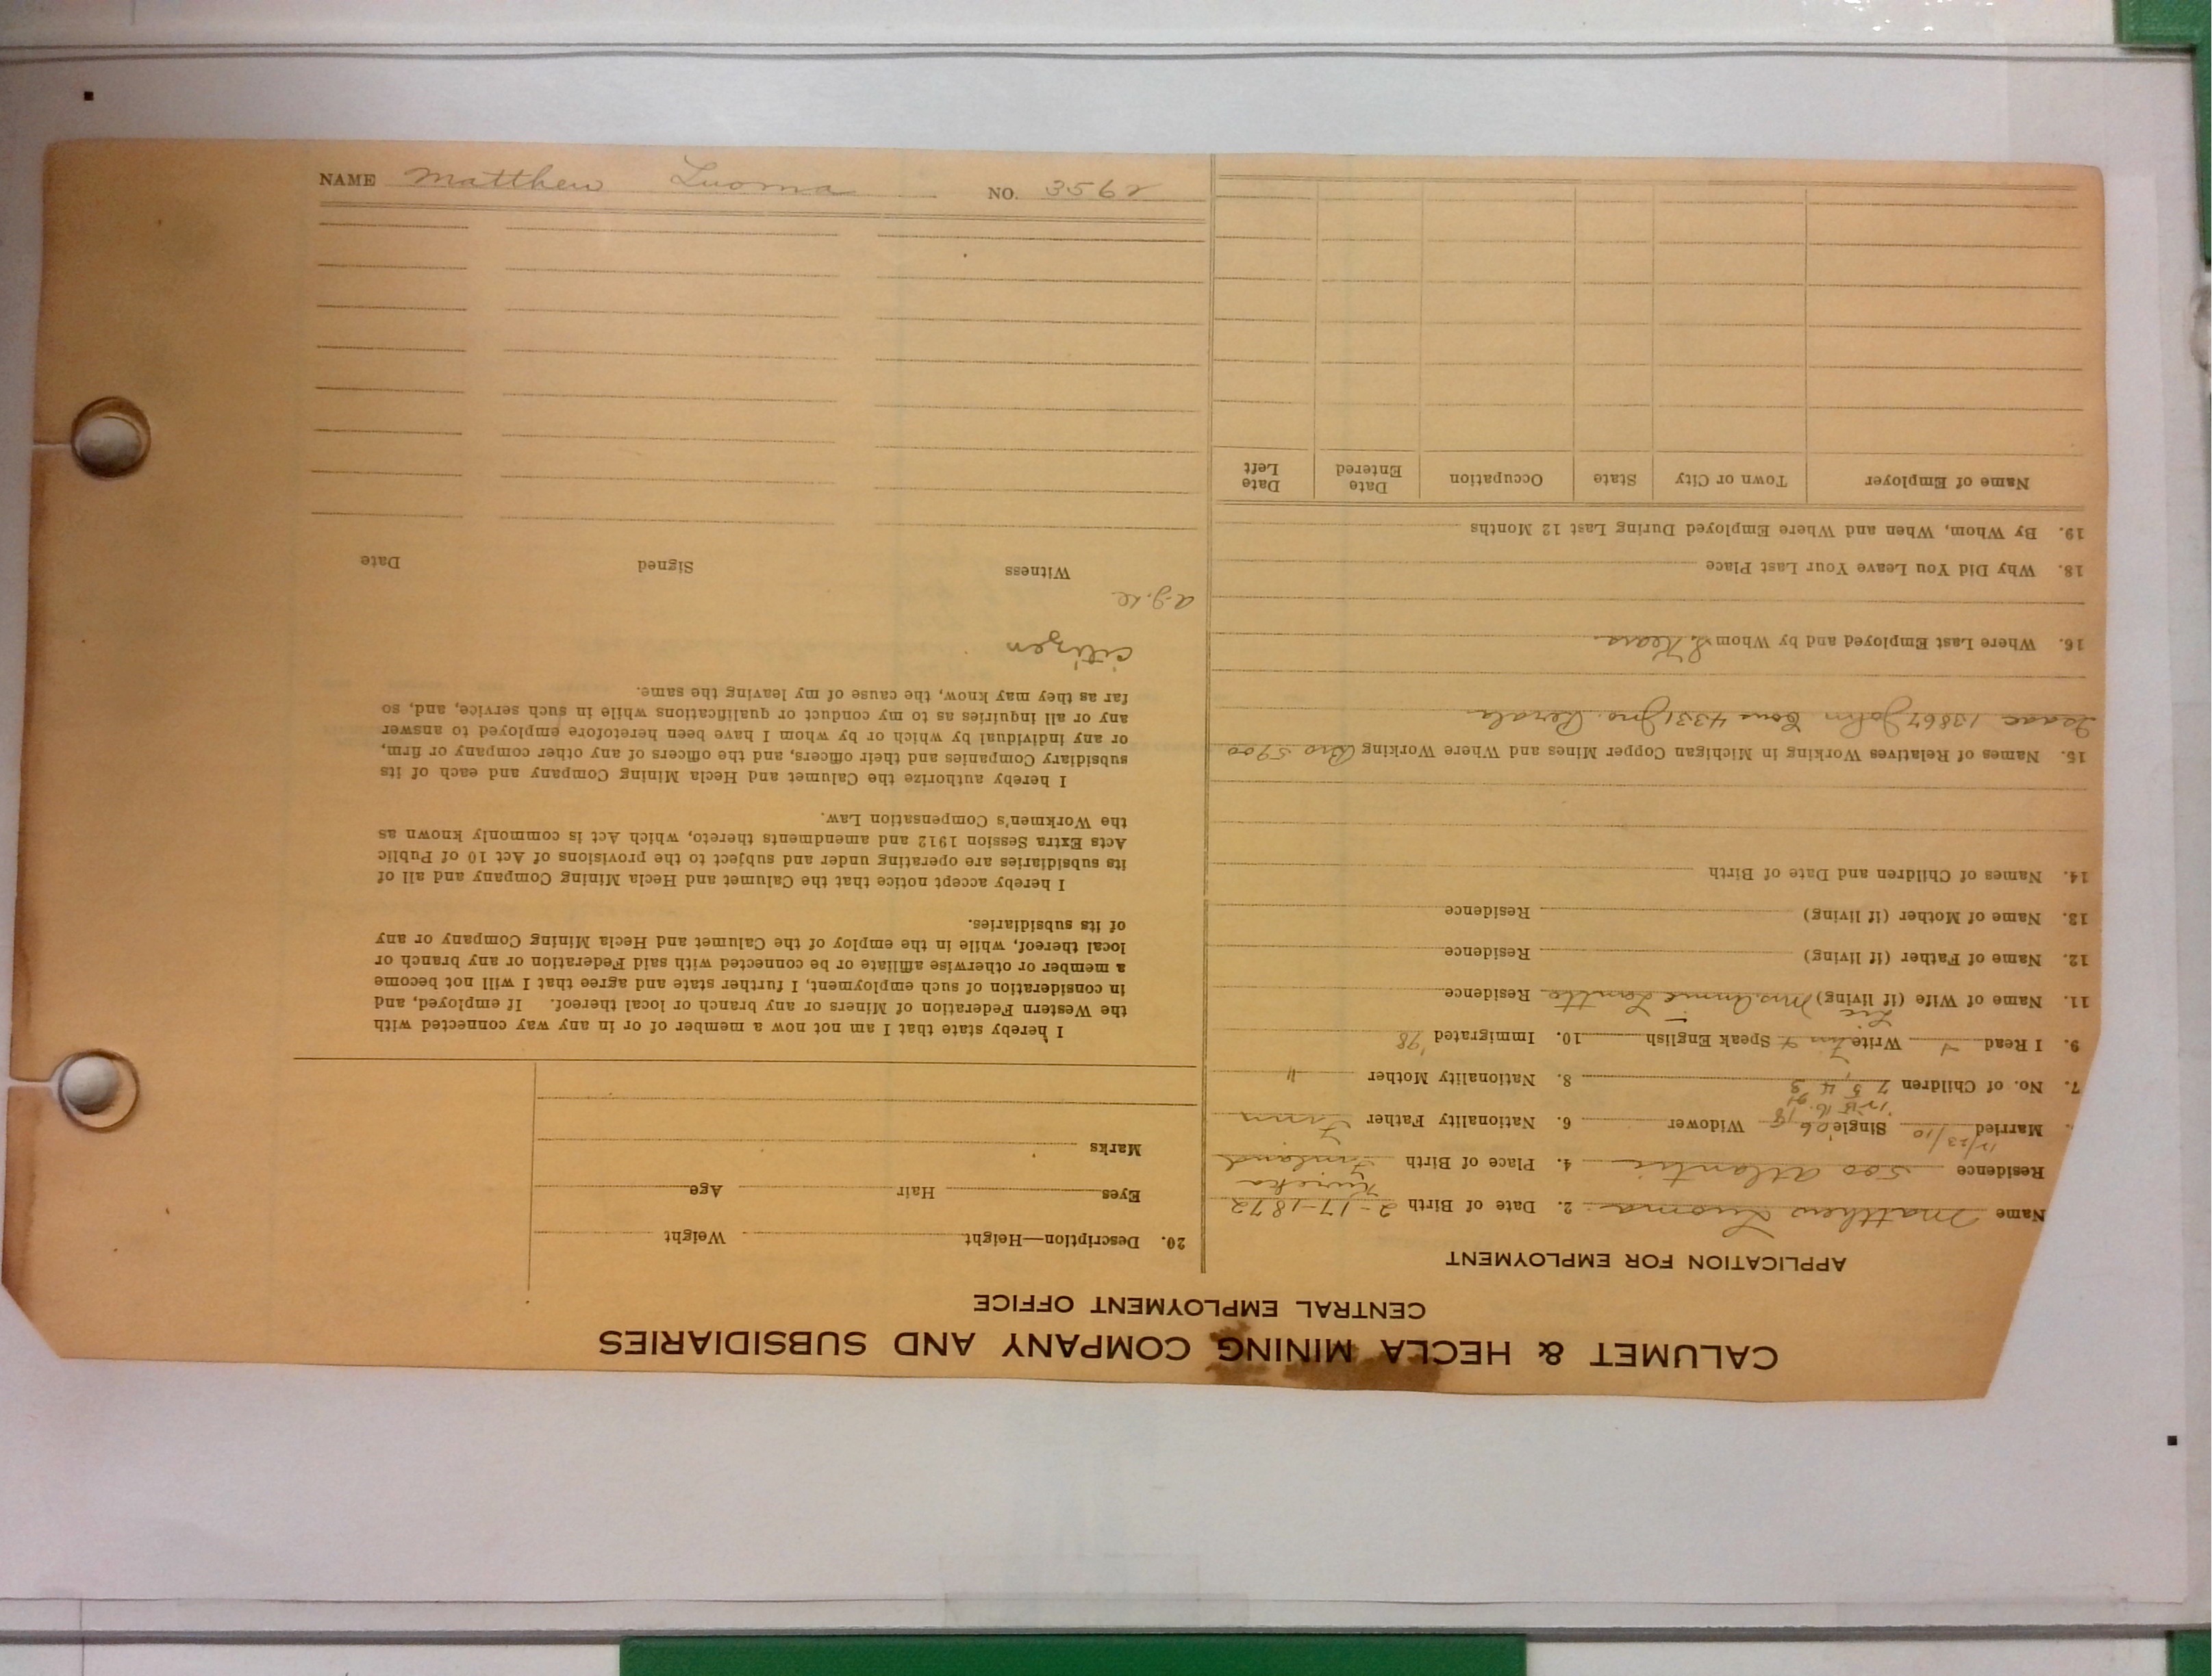 NAME Matthew Luoma NO. 3562
CALUMET & HECLA MINING COMPANY AND SUBSIDIARIES
CENTRAL EMPLOYMENT OFFICE
APPLICATION FOR EMPLOYMENT
Name Matthew Luoma 2. Date of Birth 2-17-1872
Residence 500 Atlantic 4. Place of Birth Finland
Married 12/23/10 Single '06 Widower 6. Nationality Father Finn
7. No. of Children 7 5 4 3 8. Nationality Mother "
9. I Read Write Speak English 10. Immigrated '98
11. Name of Wife (if living) Mrs. Annie Residence
12. Name of Father (if living) Residence
13. Name of Mother (if living) Residence
14. Names of Children and Date of Birth
15. Names of Relatives Working in Michigan Copper Mines and Where Working Bro 5900
Isaac 13867 John 4331 Jno.
16. Where Last Employed and by Whom
18. Why Did You Leave Your Last Place
19. By Whom, When and Where Employed During Last 12 Months
Name of Employer Town or City State Occupation Date Entered Date Left
20. Description—Height Weight
Eyes Hair Age
Marks
I hereby state that I am not now a member of or in any way connected with
the Western Federation of Miners or any branch or local thereof. If employed, and
in consideration of such employment, I further state and agree that I will not become
a member or otherwise affiliate or be connected with said Federation or any branch or
local thereof, while in the employ of the Calumet and Hecla Mining Company or any
of its subsidiaries.
I hereby accept notice that the Calumet and Hecla Mining Company and all of
its subsidiaries are operating under and subject to the provisions of Act 10 of Public
Acts Extra Session 1912 and amendments thereto, which Act is commonly known as
the Workmen's Compensation Law.
I hereby authorize the Calumet and Hecla Mining Company and each of its
subsidiary Companies and their officers, and the officers of any other company or firm,
or any individual by which or by whom I have been heretofore employed to answer
any or all inquiries as to my conduct or qualifications while in such service, and, so
far as they may know, the cause of my leaving the same.
citizen
Witness Signed Date